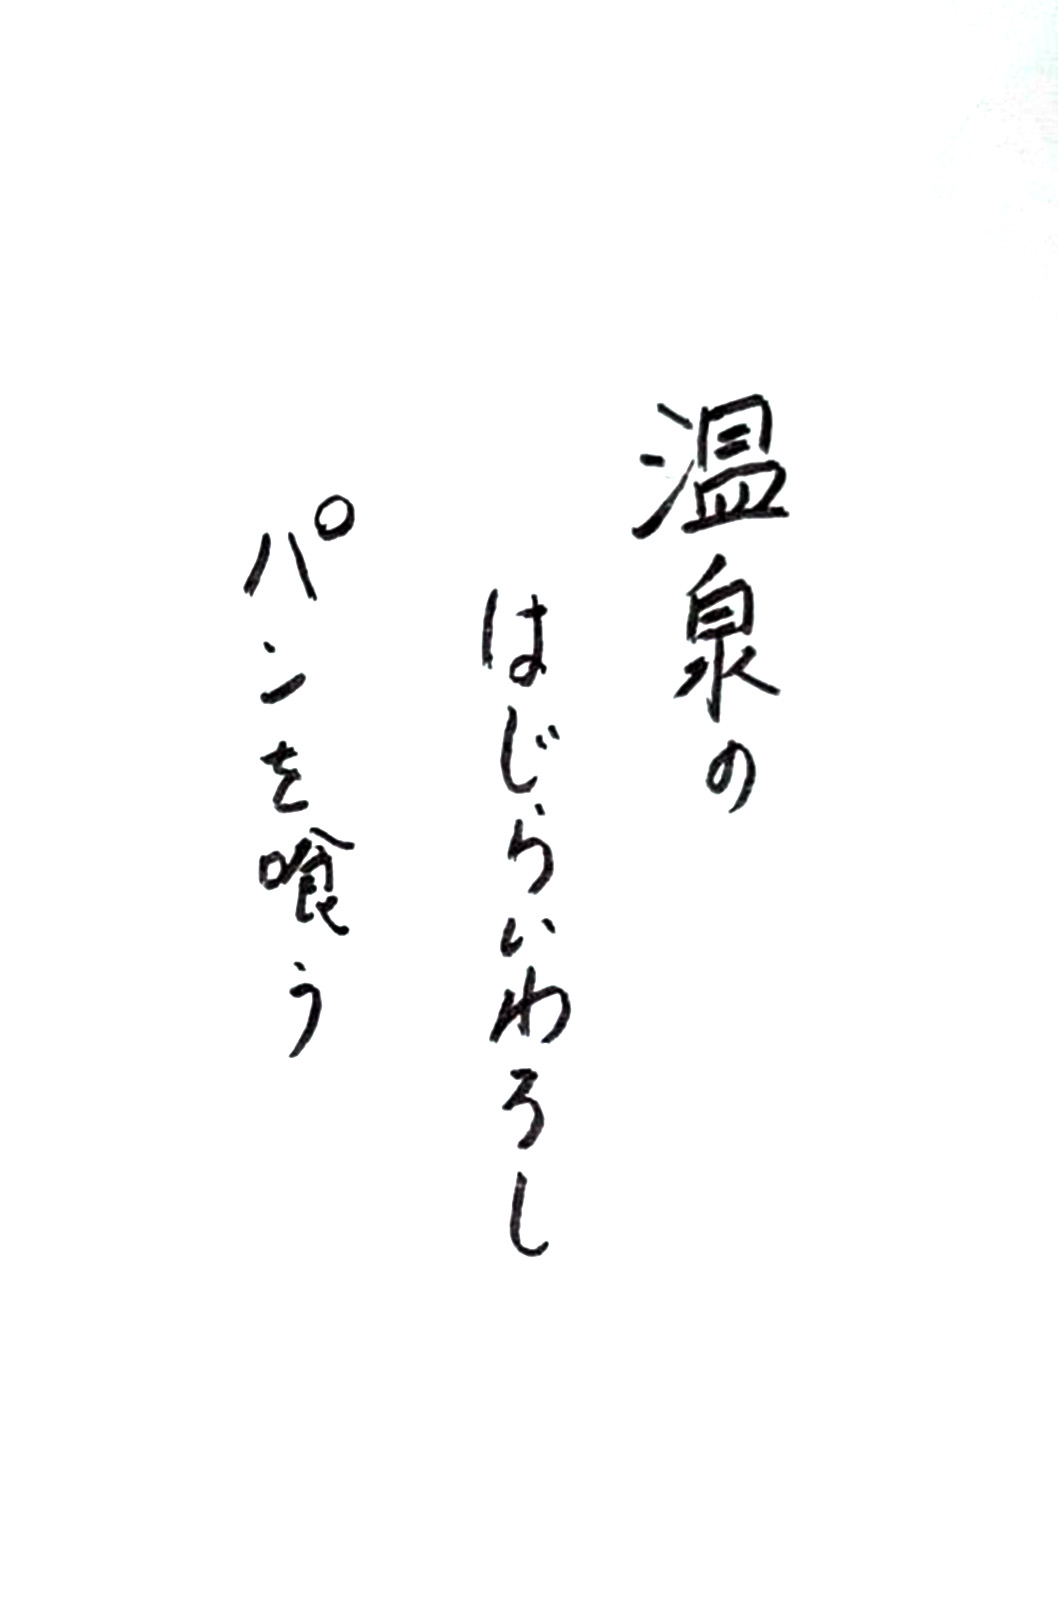 温泉の
はじらいわろし
パンを喰う